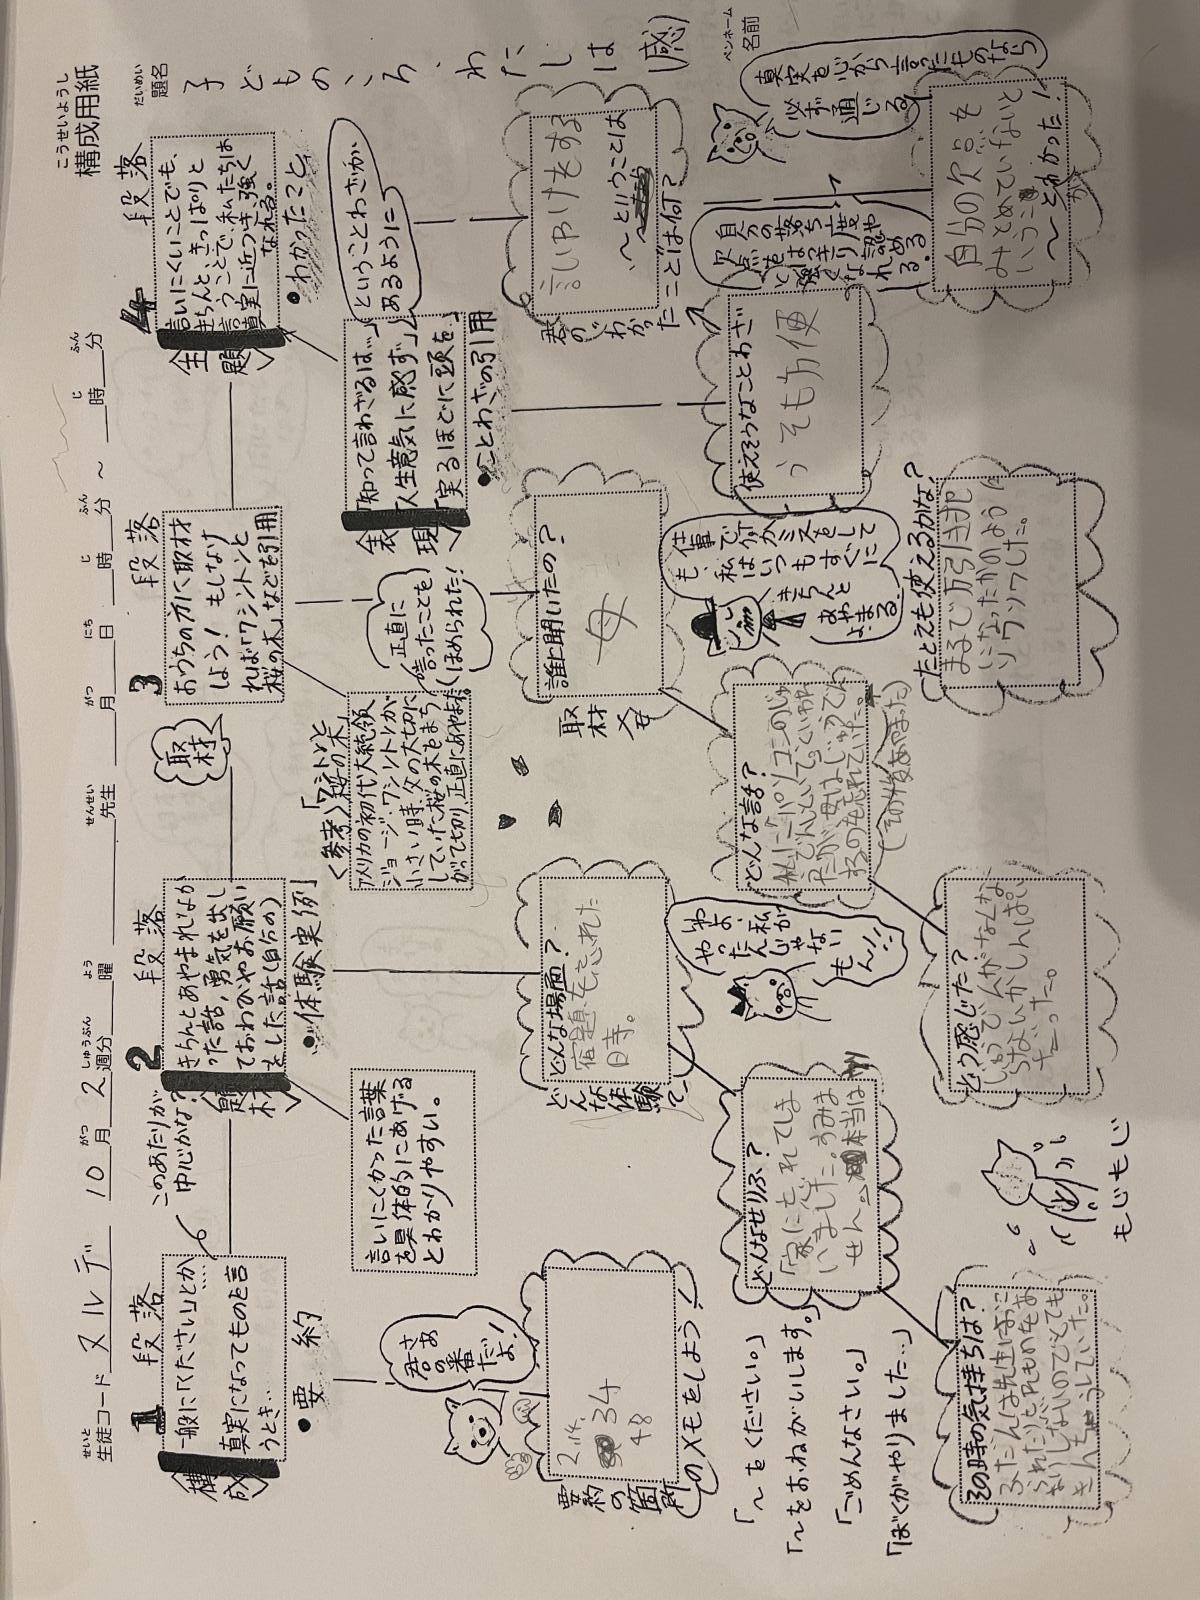 こうせいようし
構成用紙
だいめい
題名
子どものころ、わたしは(感)
ペンネーム
名前
せいと
生徒コード ヌルデ 10月 2週分 曜 先生 月 日 時 分 ～ 時 分
がつ しゅうぶん よう せんせい がつ にち じ ふん じ ふん
1 段落
構成
一般に「ください」とか
真実になってものと言
うとき…
•要約
このあたりが
中心かな?
さあ
君の番
だよ!
要約の箇所
2.14.
34
48
のメモをしよう!
「～をください。」
「～をおねがいします。」
「ごめんなさい。」
「ぼくがやりました…」
2 段落
題材
きちんとあやまれなか
った話，勇気を出し
ておわびやお願い
をした話(自分の)
•体験実例
言いにくかった言葉
を具体的にあげる
とわかりやすい。
どんな体験
どんな場面?
宿題を忘れた
時。
どんなせりふ?
「家に忘れてしま
いました。すみま
せん。」本当は
その時の気持ちは?
きんちょうしていた。
わよ、
やったん私が
じゃない
もん!!
もじもじ
3 段落
取材
おうちの方に取材
しよう! もしなけ
れば「ワシントンと
桜の木」などを引用。
<参考>「ワシントンと桜の木」
アメリカの初代大統領
ジョージ・ワシントンが
小さい時、父の大切に
していた桜の木をまち
がって切り、正直にあやまった。
正直に
言ったことを
ほめられた!
取材
誰に聞いたの?
母
どんな話?
(その後あやまった)
どう感じた?
じゅうでんがなくな
らないかしんぱい
だった。
仕事で何かミスをして
も、私はいつもすぐに
きちんと
あやまる。
たとえも使えるかな?
まるで万引き犯
になったかのように
ソワソワした。
4 段落
主題
言いにくいことでも、
きちんと、きっぱりと
言うことで、私たちは
真実に近づき強く
なれる。
•わかったこと
表現
「知って言わざるは…」
「人生意気に感ず」
「実るほどに頭を」
•ことわざの引用
ということわざが
あるように
君の「わかったこと」は何?
言いわけをする
～ということは、
使えそうなことわざ
うそも方便
自分の落ち度や
欠点をはっきり認める
と強くなれる。
真実を心から言ったものなら
必ず通じる
自分の欠点を
みとめていないと
いうこと
～とわかった!
が